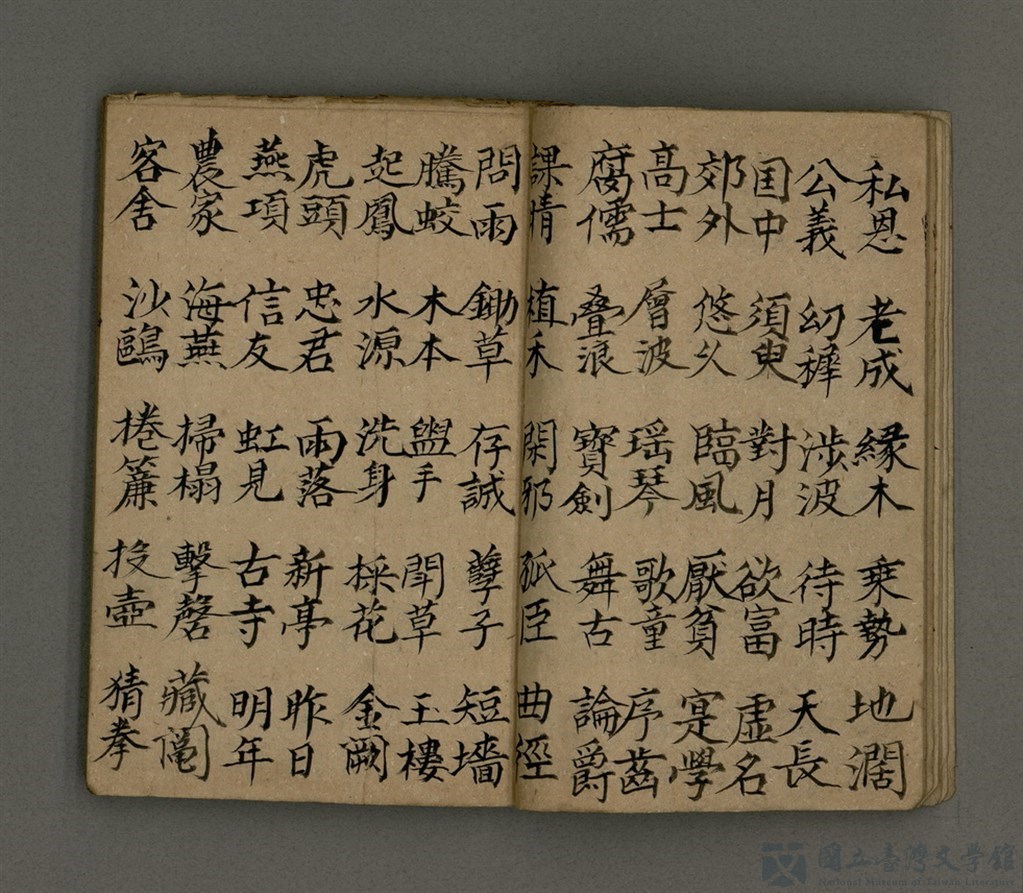 私恩 老成 緣木 乗勢 地濶
公義 幻穉 涉波 待時 天長
囯中 須臾 對月 欲富 虛名
郊外 悠久 臨風 厭貧 寔學
高士 層波 瑶琴 歌童 序齒
腐儒 叠浪 寳劍 舞古 論爵
課情 植禾 閑邪 孤臣 曲徑
問雨 鋤草 存誠 孽子 短墻
騰蛟 木本 盥手 鬥草 玉樓
起鳳 水源 洗身 採花 金闕
虎頭 忠君 雨落 新亭 昨日
燕項 信友 虹見 古寺 明年
農家 海燕 掃榻 擊磬 藏鬮
客舍 沙鷗 捲簾 投壺 猜拳
國立臺灣文學館
National Museum of Taiwan Literature